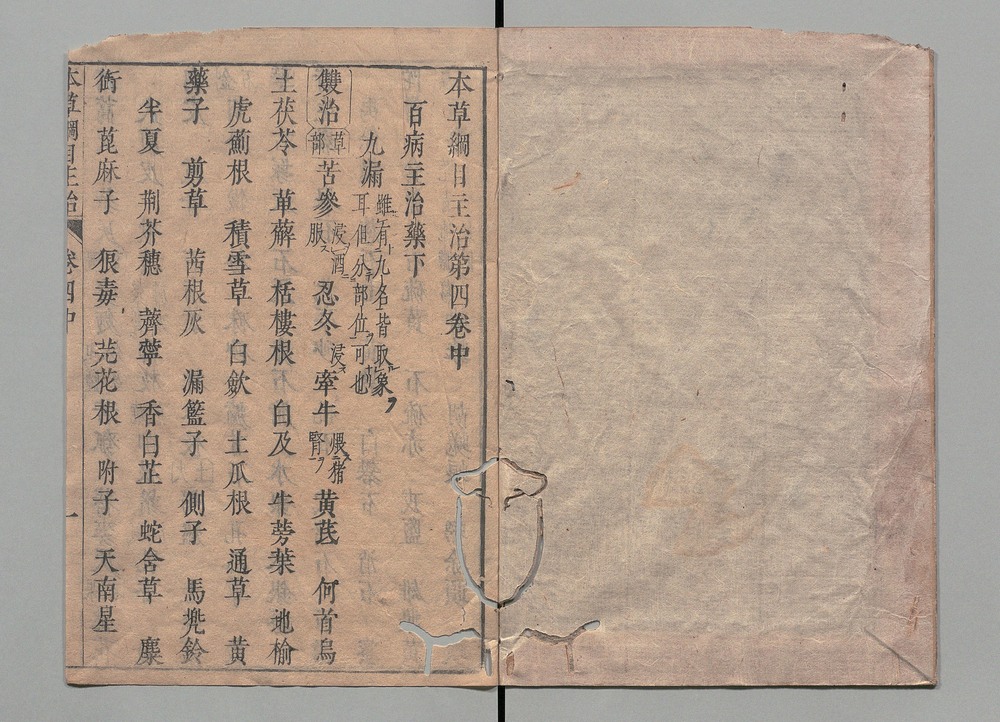 本草綱目主治第四卷中
百病主治藥下
九漏 雖有九名皆取象耳但分部位可也
雙治 草部 苦參 浸酒服 忍冬 浸 牽牛 煨猪腎 黄芪 何首烏
土茯苓 萆薢 栝樓根 白及 水牛蒡葉 地榆
虎薊根 積雪草 白歛 土瓜根 通草 黄
藥子 剪草 茜根灰 漏籃子 側子 馬兜鈴
半夏 荆芥穗 薺薴 香白芷 蛇含草 麋
衘 萞麻子 狠毒 芫花根 附子 天南星
本草綱目主治 卷四中 一